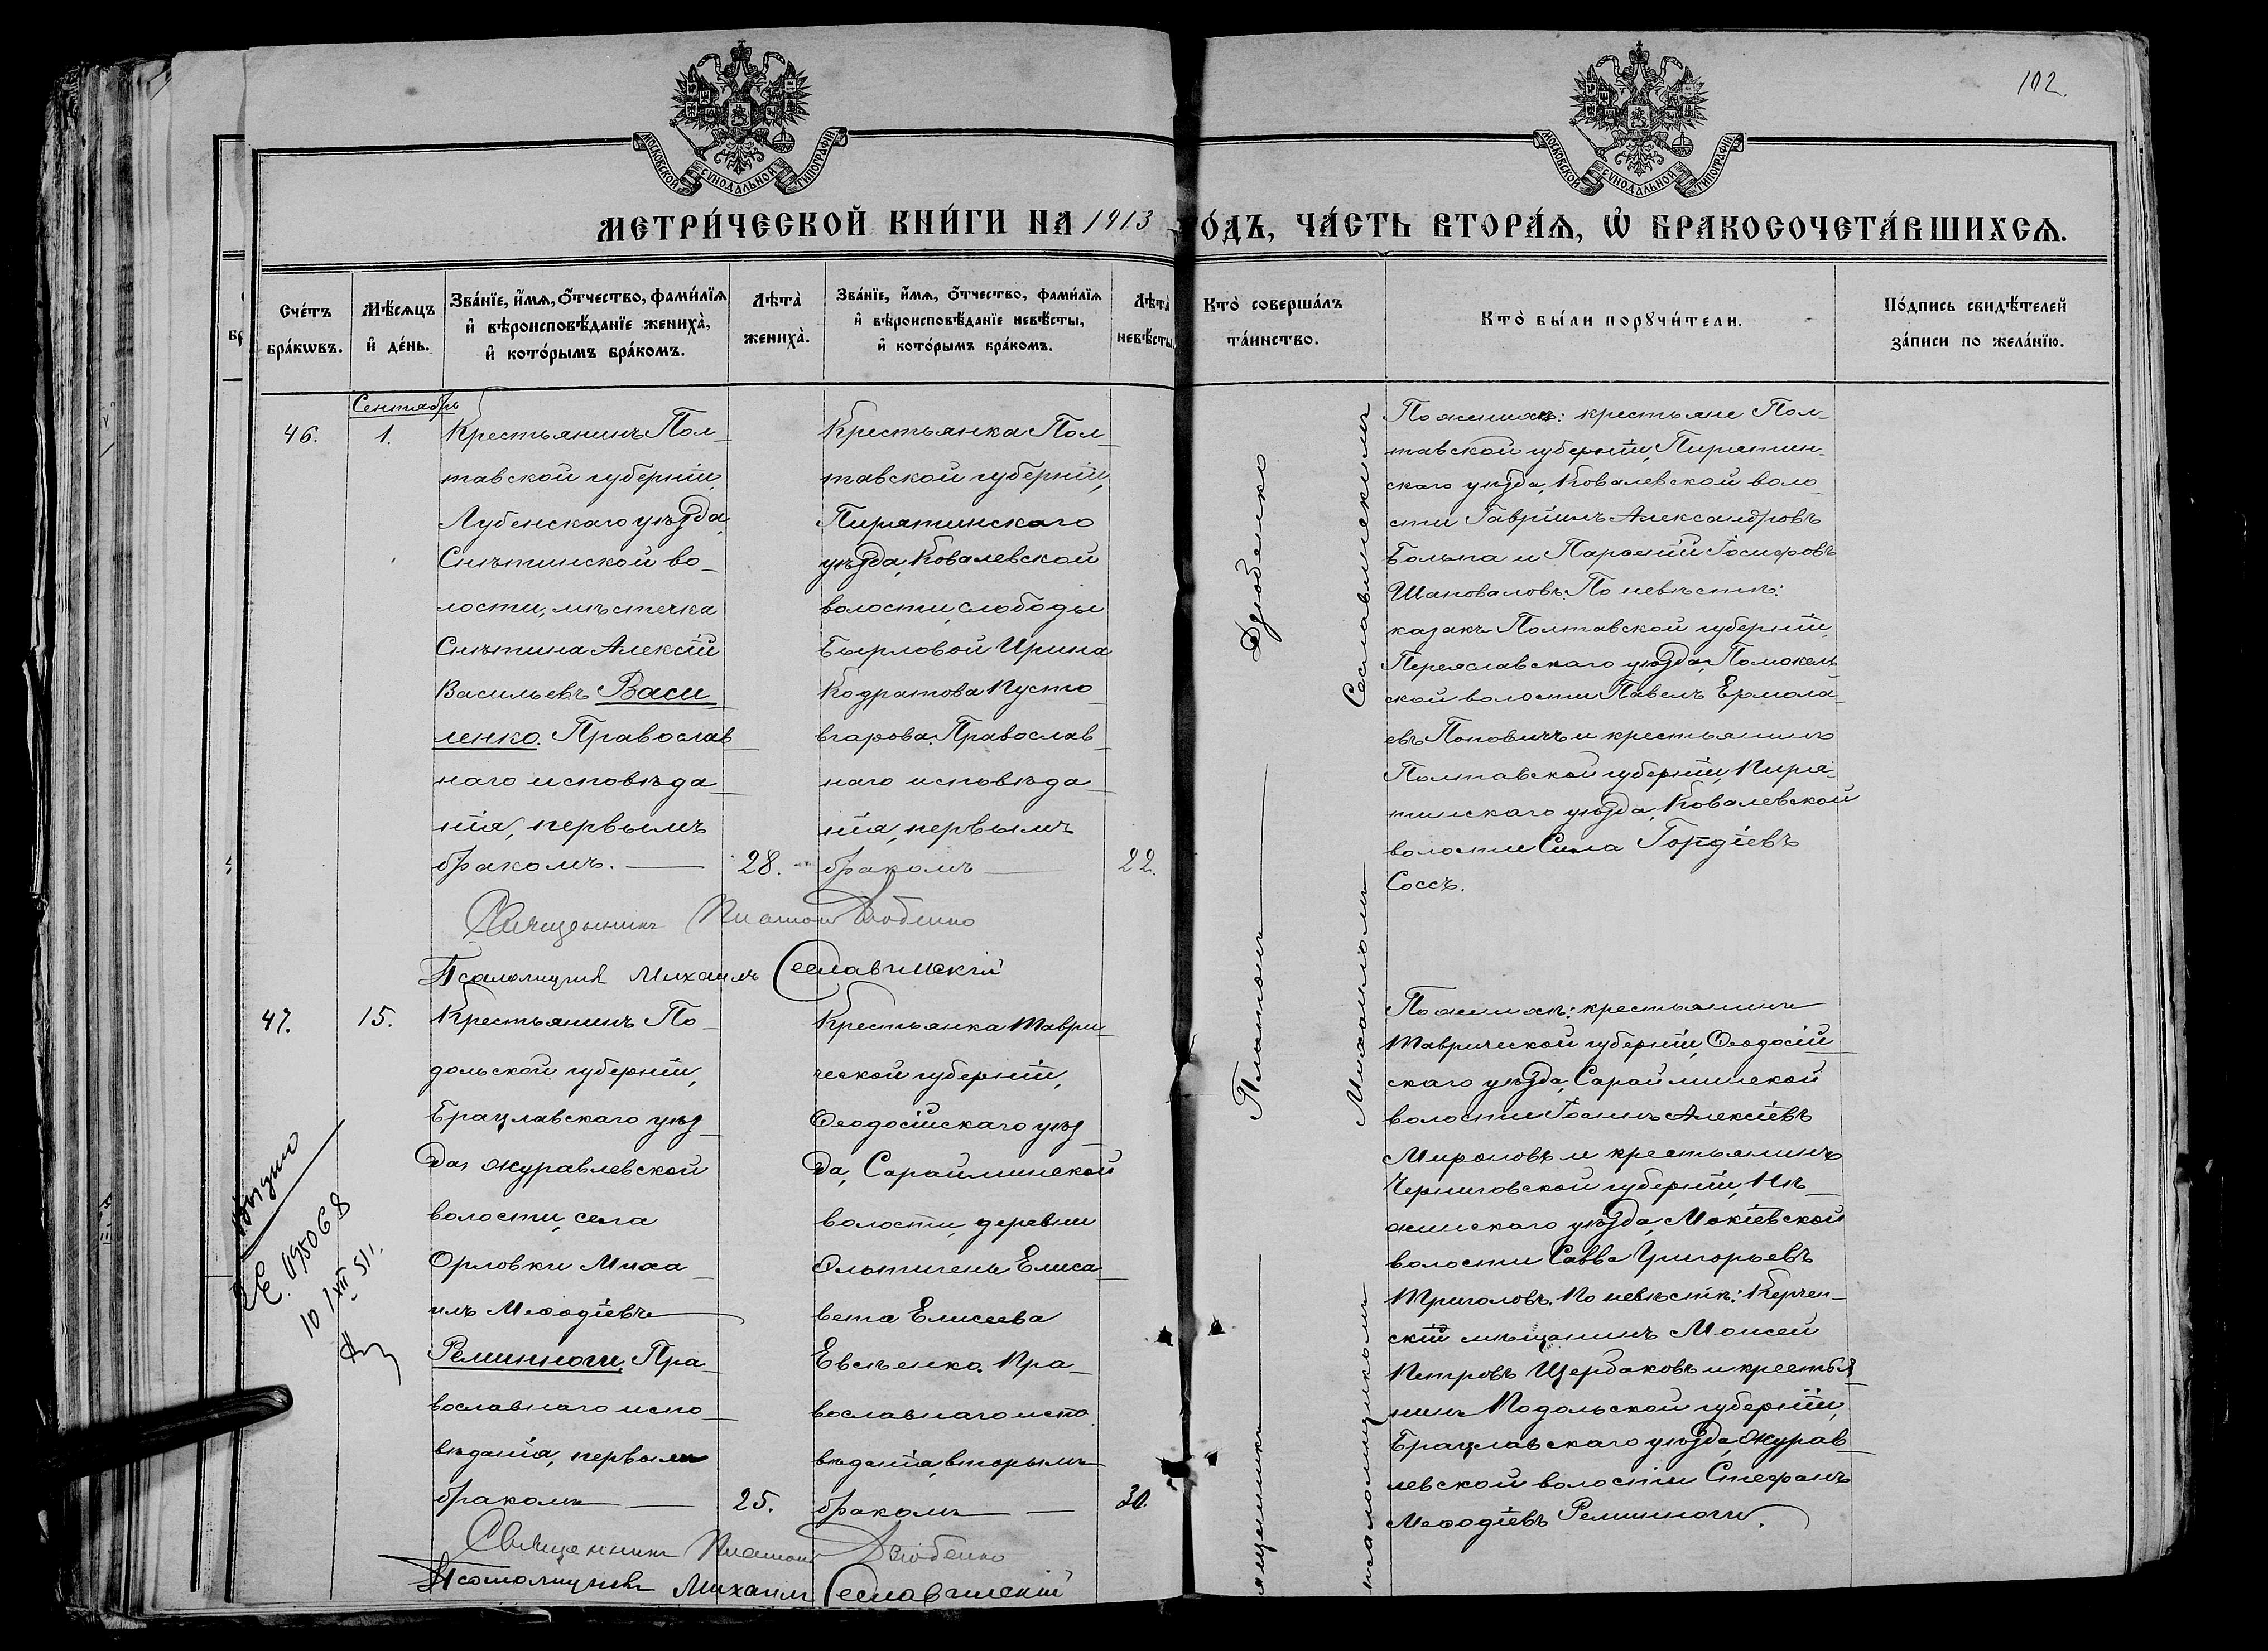 102.
МОСКОВСКОЙ СѴНОДАЛЬНОЙ ТИПОГРАФІИ
МОСКОВСКОЙ СѴНОДАЛЬНОЙ ТИПОГРАФІИ
МЕТРИ́ЧЕСКОЙ КНИ́ГИ НА 1913 ГО́ДЪ, ЧА́СТЬ ВТОРА́Ѧ, Ѡ҆ БРАКОСОЧЕТА́ВШИХСѦ.
Сче́тъ
бра́кѡвъ.
Мѣ́сѧцъ
и҆ де́нь.
Зва́нїе, и҆́мѧ, ѻ҆́тчество, фами́лїѧ
и҆ вѣроисповѣ́данїе жениха̀,
и҆ кото́рымъ бра́комъ.
Лѣта̀
жениха̀.
Зва́нїе, и҆́мѧ, ѻ҆́тчество, фами́лїѧ
и҆ вѣроисповѣ́данїе невѣ́сты,
и҆ кото́рымъ бра́комъ.
Лѣта̀
невѣ́сты.
Кто̀ соверша́лъ
та́инство.
Кто̀ бы́ли порꙋчи́тели.
По́дпись свидѣ́телей
за́писи по жела́нїю.
46.
Сентябрь
1.
Крестьянинъ Пол-
тавской губерніи,
Лубенскаго уѣзда,
Снѣтинской во-
лости, мѣстечка
Снѣтина Алексій
Васильевъ Васи-
ленко. Православ-
наго исповѣда-
нія, первымъ
бракомъ.
28.
Крестьянка Пол-
тавской губерніи,
Пирятинскаго
уѣзда, Ковалевской
волости, слободы
Бырловой Ирина
Кодратова Пусто-
вгарова. Православ-
наго исповѣда-
нія, первымъ
бракомъ
22.
Священникъ Платонъ Дзюбенко
Псаломщикъ Михаилъ Сеславинскій
По женихѣ: крестьяне Пол-
тавской губерніи, Пирятин-
скаго уѣзда, Ковалевской воло-
сти Гавріилъ Александровъ
Больпа и Парѳеній Іосифовъ
Шаповаловъ. По невѣстѣ:
казакъ Полтавской губерніи,
Переяславскаго уѣзда, Помокель
ской волости Павелъ Ермола-
евъ Поповичъ и крестьянинъ
Полтавской губерніи, Пиря-
тинскаго уѣзда, Ковалевской
волости Сила Гордіевъ
Соссъ.
47.
15.
Крестьянинъ По-
дольской губерніи,
Брацлавскаго уѣз-
да, Журавлевской
волости, села
Орловки Миха-
илъ Меѳодіевъ
Реминноги, Пра-
вославнаго испо-
вѣданія, первымъ
бракомъ
25.
Крестьянка Таври-
ческой губерніи,
Ѳеодосійскаго уѣз-
да, Сарайминской
волости, деревни
Ольтигень Елиса-
вета Елисеева
Евсѣенко. Пра-
вославнаго испо-
вѣданія, вторымъ
бракомъ
30.
Священникъ Платонъ Дзюбенко
Псаломщикъ Михаилъ Сеславинскій
По женихѣ: крестьянинъ
Таврической губерніи, Ѳеодосій-
скаго уѣзда, Сарайминской
волости Іоаннъ Алексіевъ
Мироновъ и крестьянинъ
Черниговской губерніи, Нѣ-
жинскаго уѣзда, Мокіевской
волости Савва Григорьевъ
Триголовъ. По невѣстѣ: Керчен-
скій мѣщанинъ Моисей
Петровъ Щербаковъ и крестья
нинъ Подольской губерніи,
Брацлавскаго уѣзда, Журав-
левской волости Стефанъ
Меѳодіевъ Реминноги.
Платономъ Дзюбенко
Михаиломъ Сеславинскимъ
Выдано
095068
10/XII 51 г.